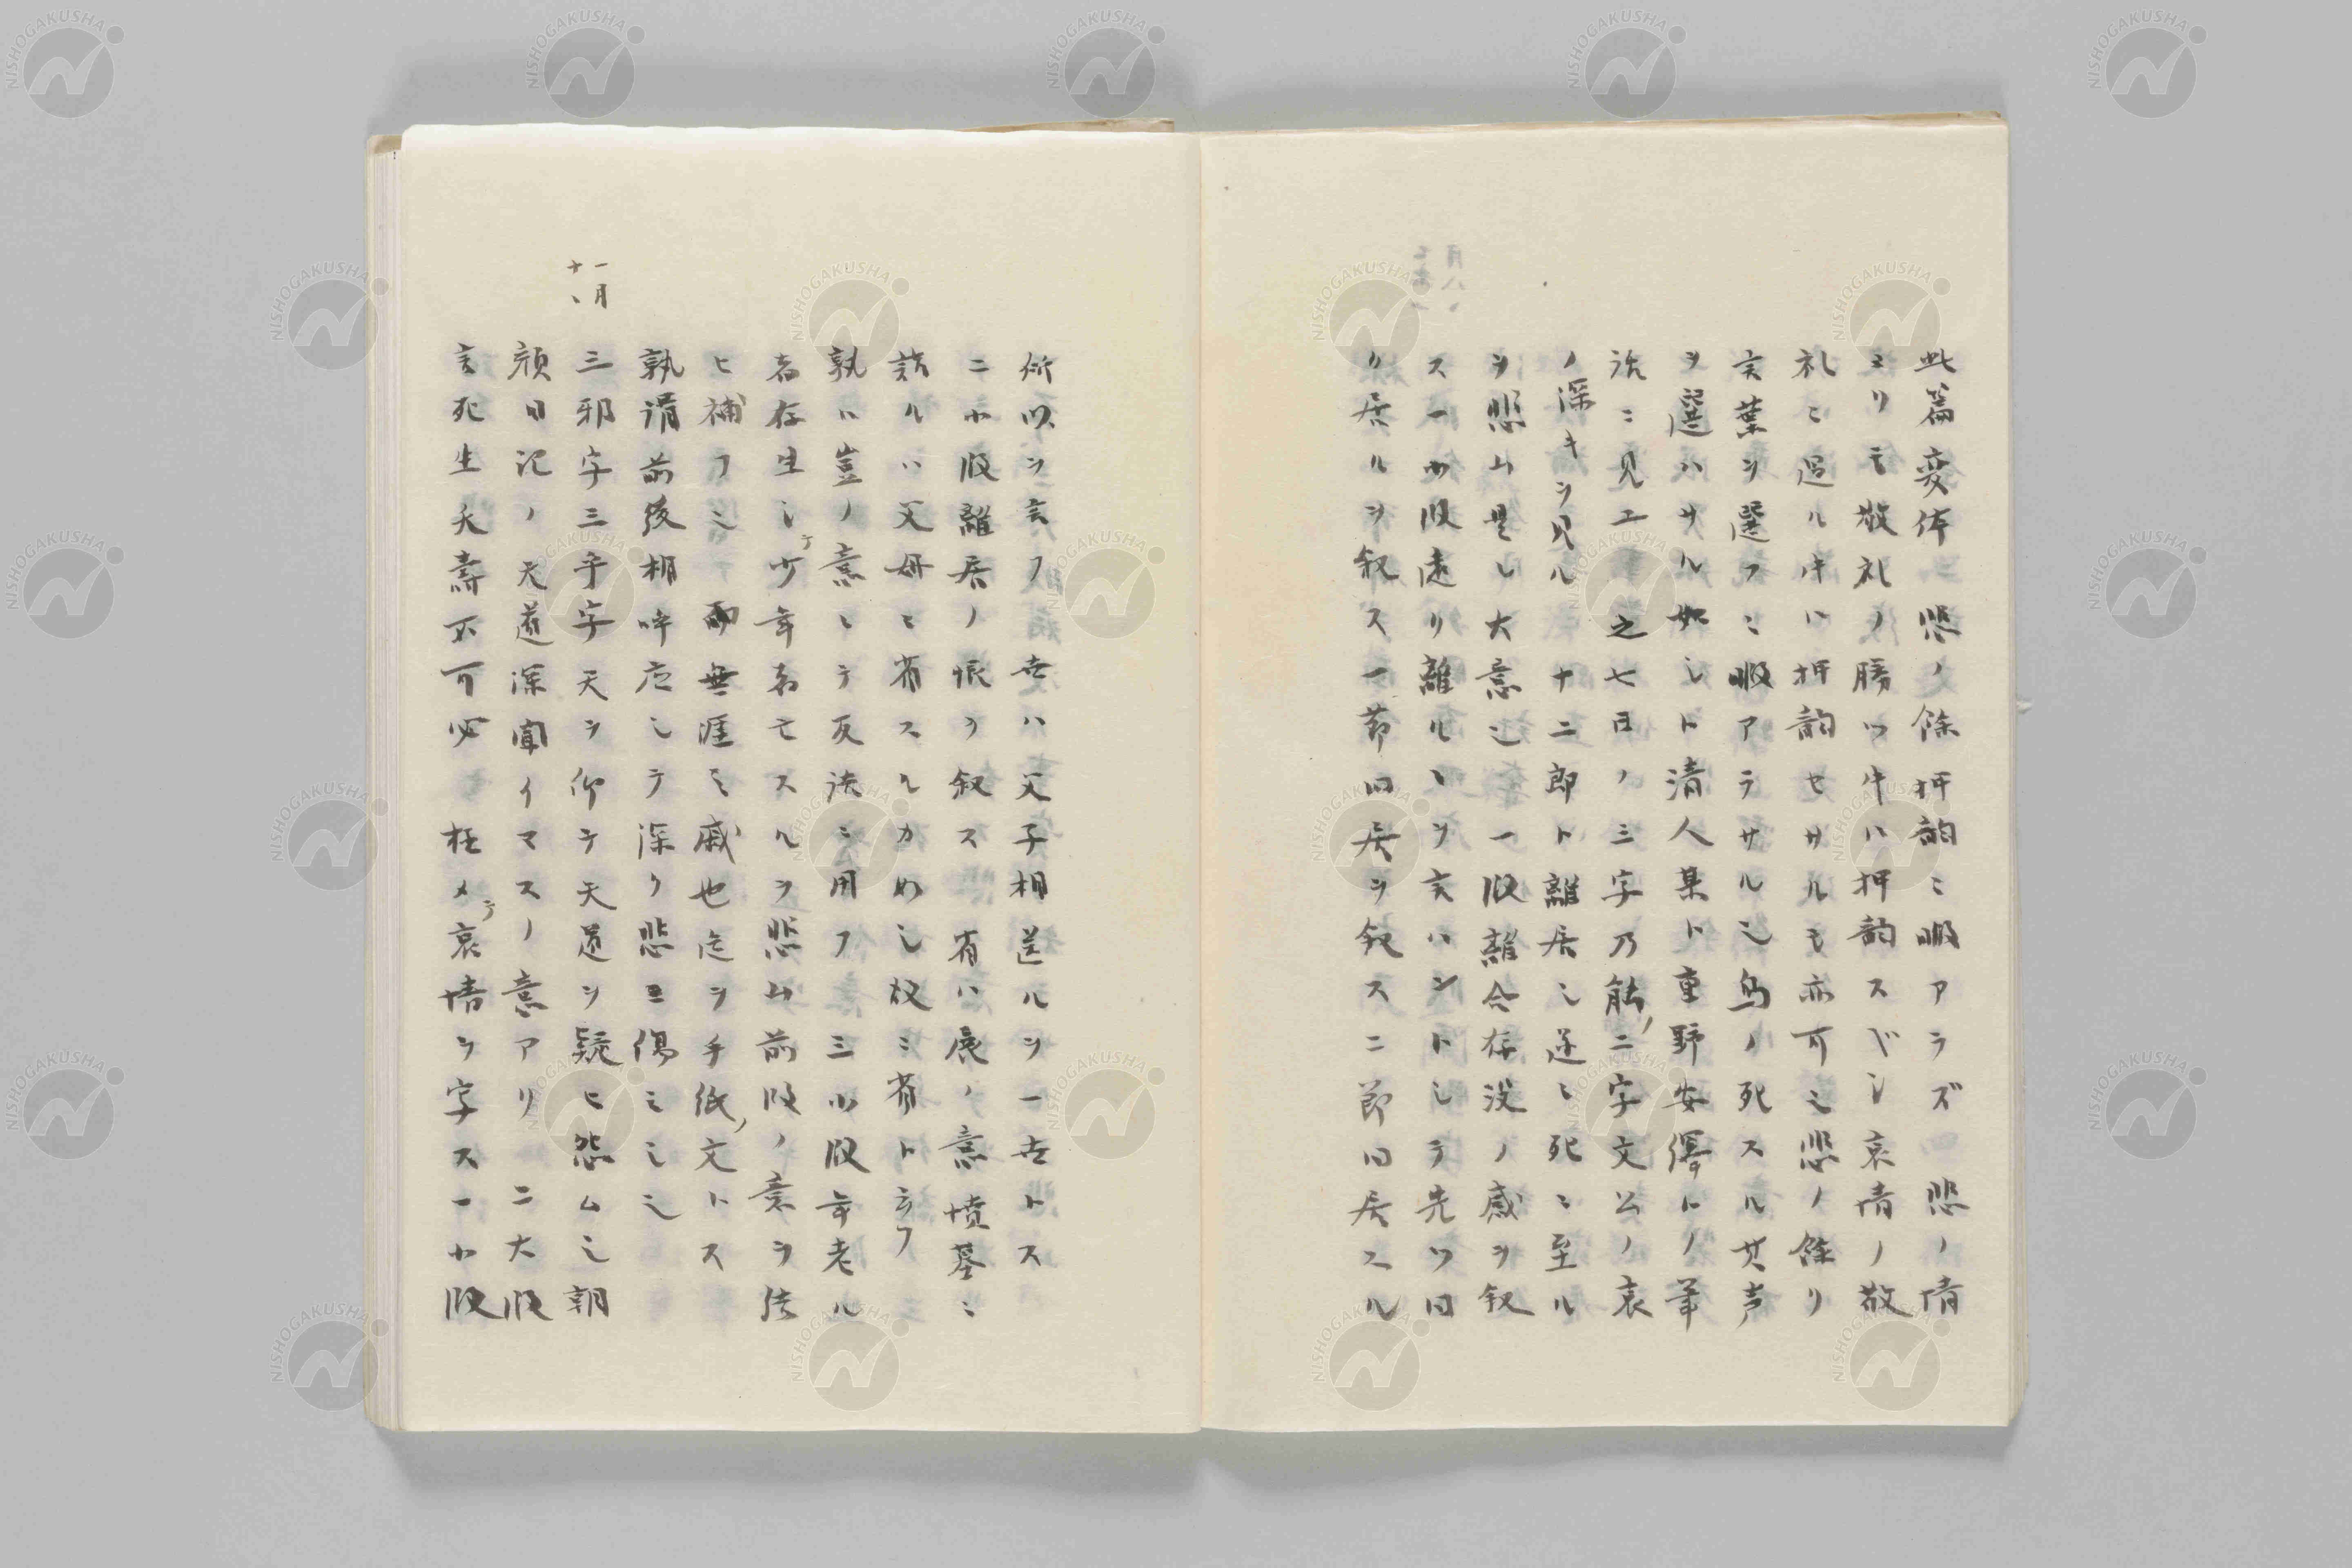 此篇変体ニ悲ノ餘押韵ニ暇アラズ 悲ノ情
ヨリモ敬礼ノ勝ツ牛ハ押韵スベシ哀情ノ敬
礼ニ過ル牛ハ押韵セサルモ亦可ミ之悲ノ餘リ
言葉ヲ選フニ暇アラサル之鳥ノ死スル其声
ヲ選ハサル如シト清人某ト重野安繹トノ筆
話ニ見エ 之七日ノ三字乃能ノ二字文公ノ哀
ノ深キヲ見ル 十二郎ト離居シ遂ニ死ニ至ル
ヲ悲ム是レ大意之 一段離合存没ノ感ヲ叙
ス一小段遠リ離ルヽヲ言ハントシテ先ツ同
リ居ルヲ叙ス一節同居ヲ叙ス二節同居スル
所以ヲ言フ 世ハ父子相送ルヲ一世トス
二小段離居ノ恨ヲ叙ス 省ハ展ノ意墳墓ニ
詣ルハ父母ニ省スルカ如シ故ニ省ト云フ
孰ハ豈ノ意ニテ反語ニ用フ 三小段年老ル
者存生シテ少年者亡スルヲ悲ム前段ノ意ヲ
ヒ補フ之 両無涯之戚也迄ヲ手紙ノ文トス
孰謂前後相呼応シテ深ク悲ヨ傷ミシ之
三邪字三乎字天ヲ仰テ天道ヲ疑ヒ怨ム之朝
顔日記ノ天道深聞イマスノ意アリ 二大段
言死生夭壽不可必 極メテ哀情ヲ字ス一小段
一月
十八